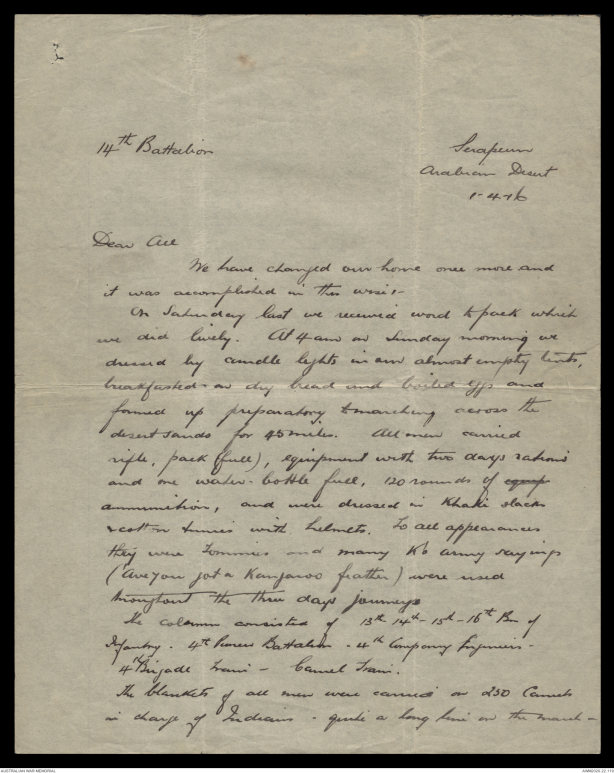 14th Battalion
Serapeum
Arabian Desert
1-4-16
Dear All
We have changed our home once more and
it was accomplished in this wise:-
On Saturday last we received word to pack which
we did lively. At 4 am on Sunday morning we
dressed by candle lights in our almost empty tents,
breakfasted on dry bread and boiled eggs and
formed up preparatory to marching across the
desert sands for 45 miles. All men carried
rifle, pack (full), equipment with two days rations
and one water-bottle full, 120 rounds of equip
ammunition, and were dressed in Khaki slacks
& cotton tunics with helmets. To all appearances
they were Tommies and many K's army sayings
(Ave you got a Kangaroo feather) were used
throughout the three days journeys
The column consisted of 13th 14th - 15th - 16th Bn of
Infantry. 4th Pioneer Battalion - 4th Company Engineers -
4th Brigade Train - Camel Train.
The blankets of all men were carried on 250 Camels
in charge of Indians - quite a long line on the march -
AUSTRALIAN WAR MEMORIAL